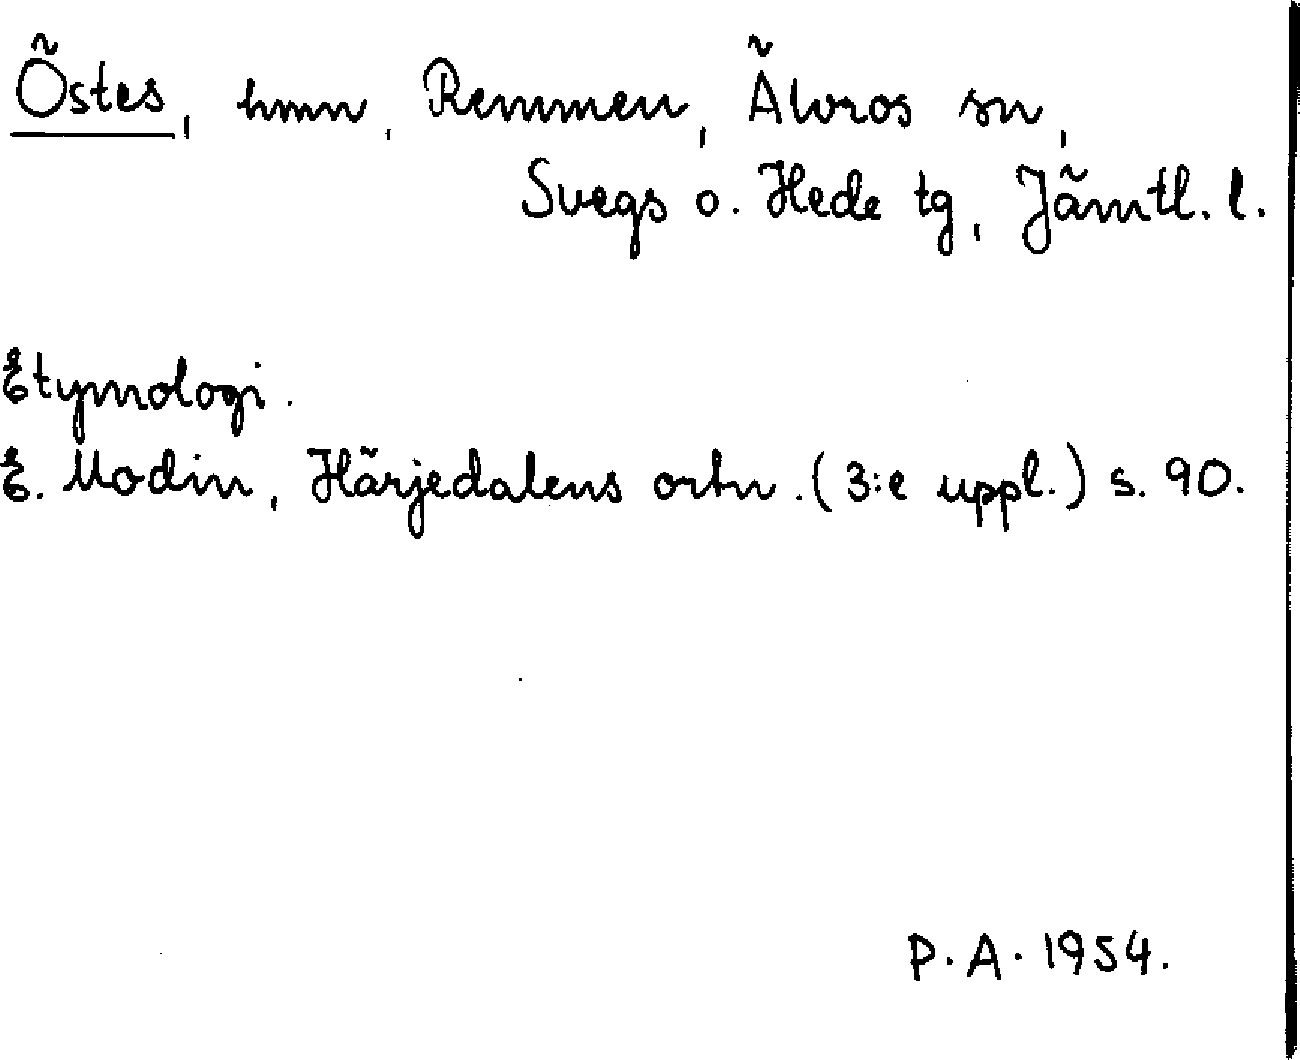 Östes, hmn, Remmen, Älvros sn,
Svegs o. Hede tg, Jämtl. l.
Etymologi.
E. Modin, Härjedalens ortn. (3:e uppl.) s. 90.
P. A. 1954.